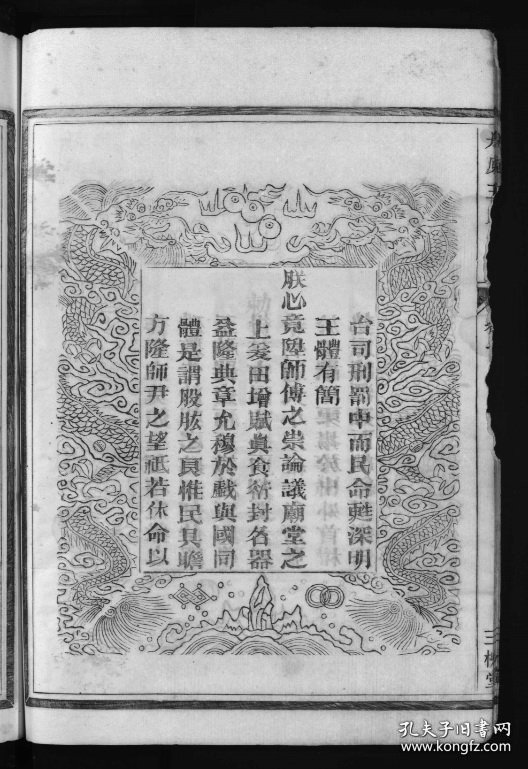 台司刑罰中而民命甦深明
王體有簡
朕心竟陞師傅之崇論議廟堂之
上爰田增賦眞食衍封名器
益隆典章允穆於戲與國同
體是謂股肱之良惟民具瞻
方隆師尹之望祗若休命以
三槐堂
孔夫子旧书网
www.kongfz.com